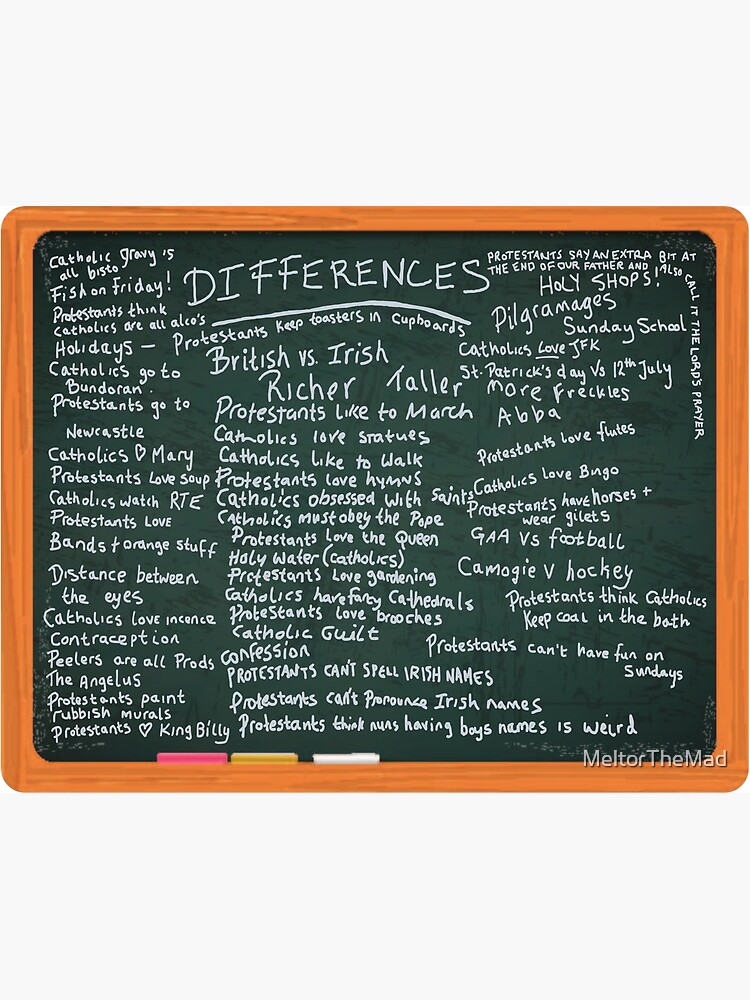 DIFFERENCES
Catholic gravy is
all bisto
Fish on Friday!
Protestants think
catholics are all alco's
Holidays –
Catholics go to
Bundoran.
Protestants go to
Newcastle
Catholics ♡ Mary
Protestants Love soup
Catholics watch RTE
Protestants Love
Bands + orange stuff
Distance between
the eyes
Catholics love incence
Contraception
Peelers are all Prods
The Angelus
Protestants paint
rubbish murals
Protestants ♡ King Billy
Protestants keep toasters in cupboards
British vs. Irish
Richer Taller
Protestants like to March
Catholics love statues
Catholics like to walk
Protestants love hymns
Catholics obsessed with saints
Catholics must obey the Pope
Protestants love the Queen
Holy water (catholics)
Protestants love gardening
Catholics have fancy Cathedrals
Protestants love brooches
Catholic Guilt
Confession
PROTESTANTS CAN'T SPELL IRISH NAMES
Protestants can't Pronounce Irish names
Protestants think nuns having boys names is weird
PROTESTANTS SAY AN EXTRA BIT AT
THE END OF OUR FATHER AND
ALSO CALL IT THE LORD'S PRAYER
HOLY SHOPS!
Pilgramages
Sunday School
Catholics Love JFK
St. Patrick's day Vs 12th July
More Freckles
Abba
Protestants love flutes
Catholics Love Bingo
Protestants have horses +
wear gilets
GAA Vs football
Camogie V hockey
Protestants think Catholics
Keep coal in the bath
Protestants can't have fun on
Sundays
MeltorTheMad